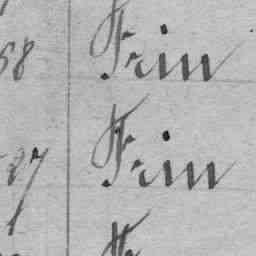 58 Frin
87 Frin